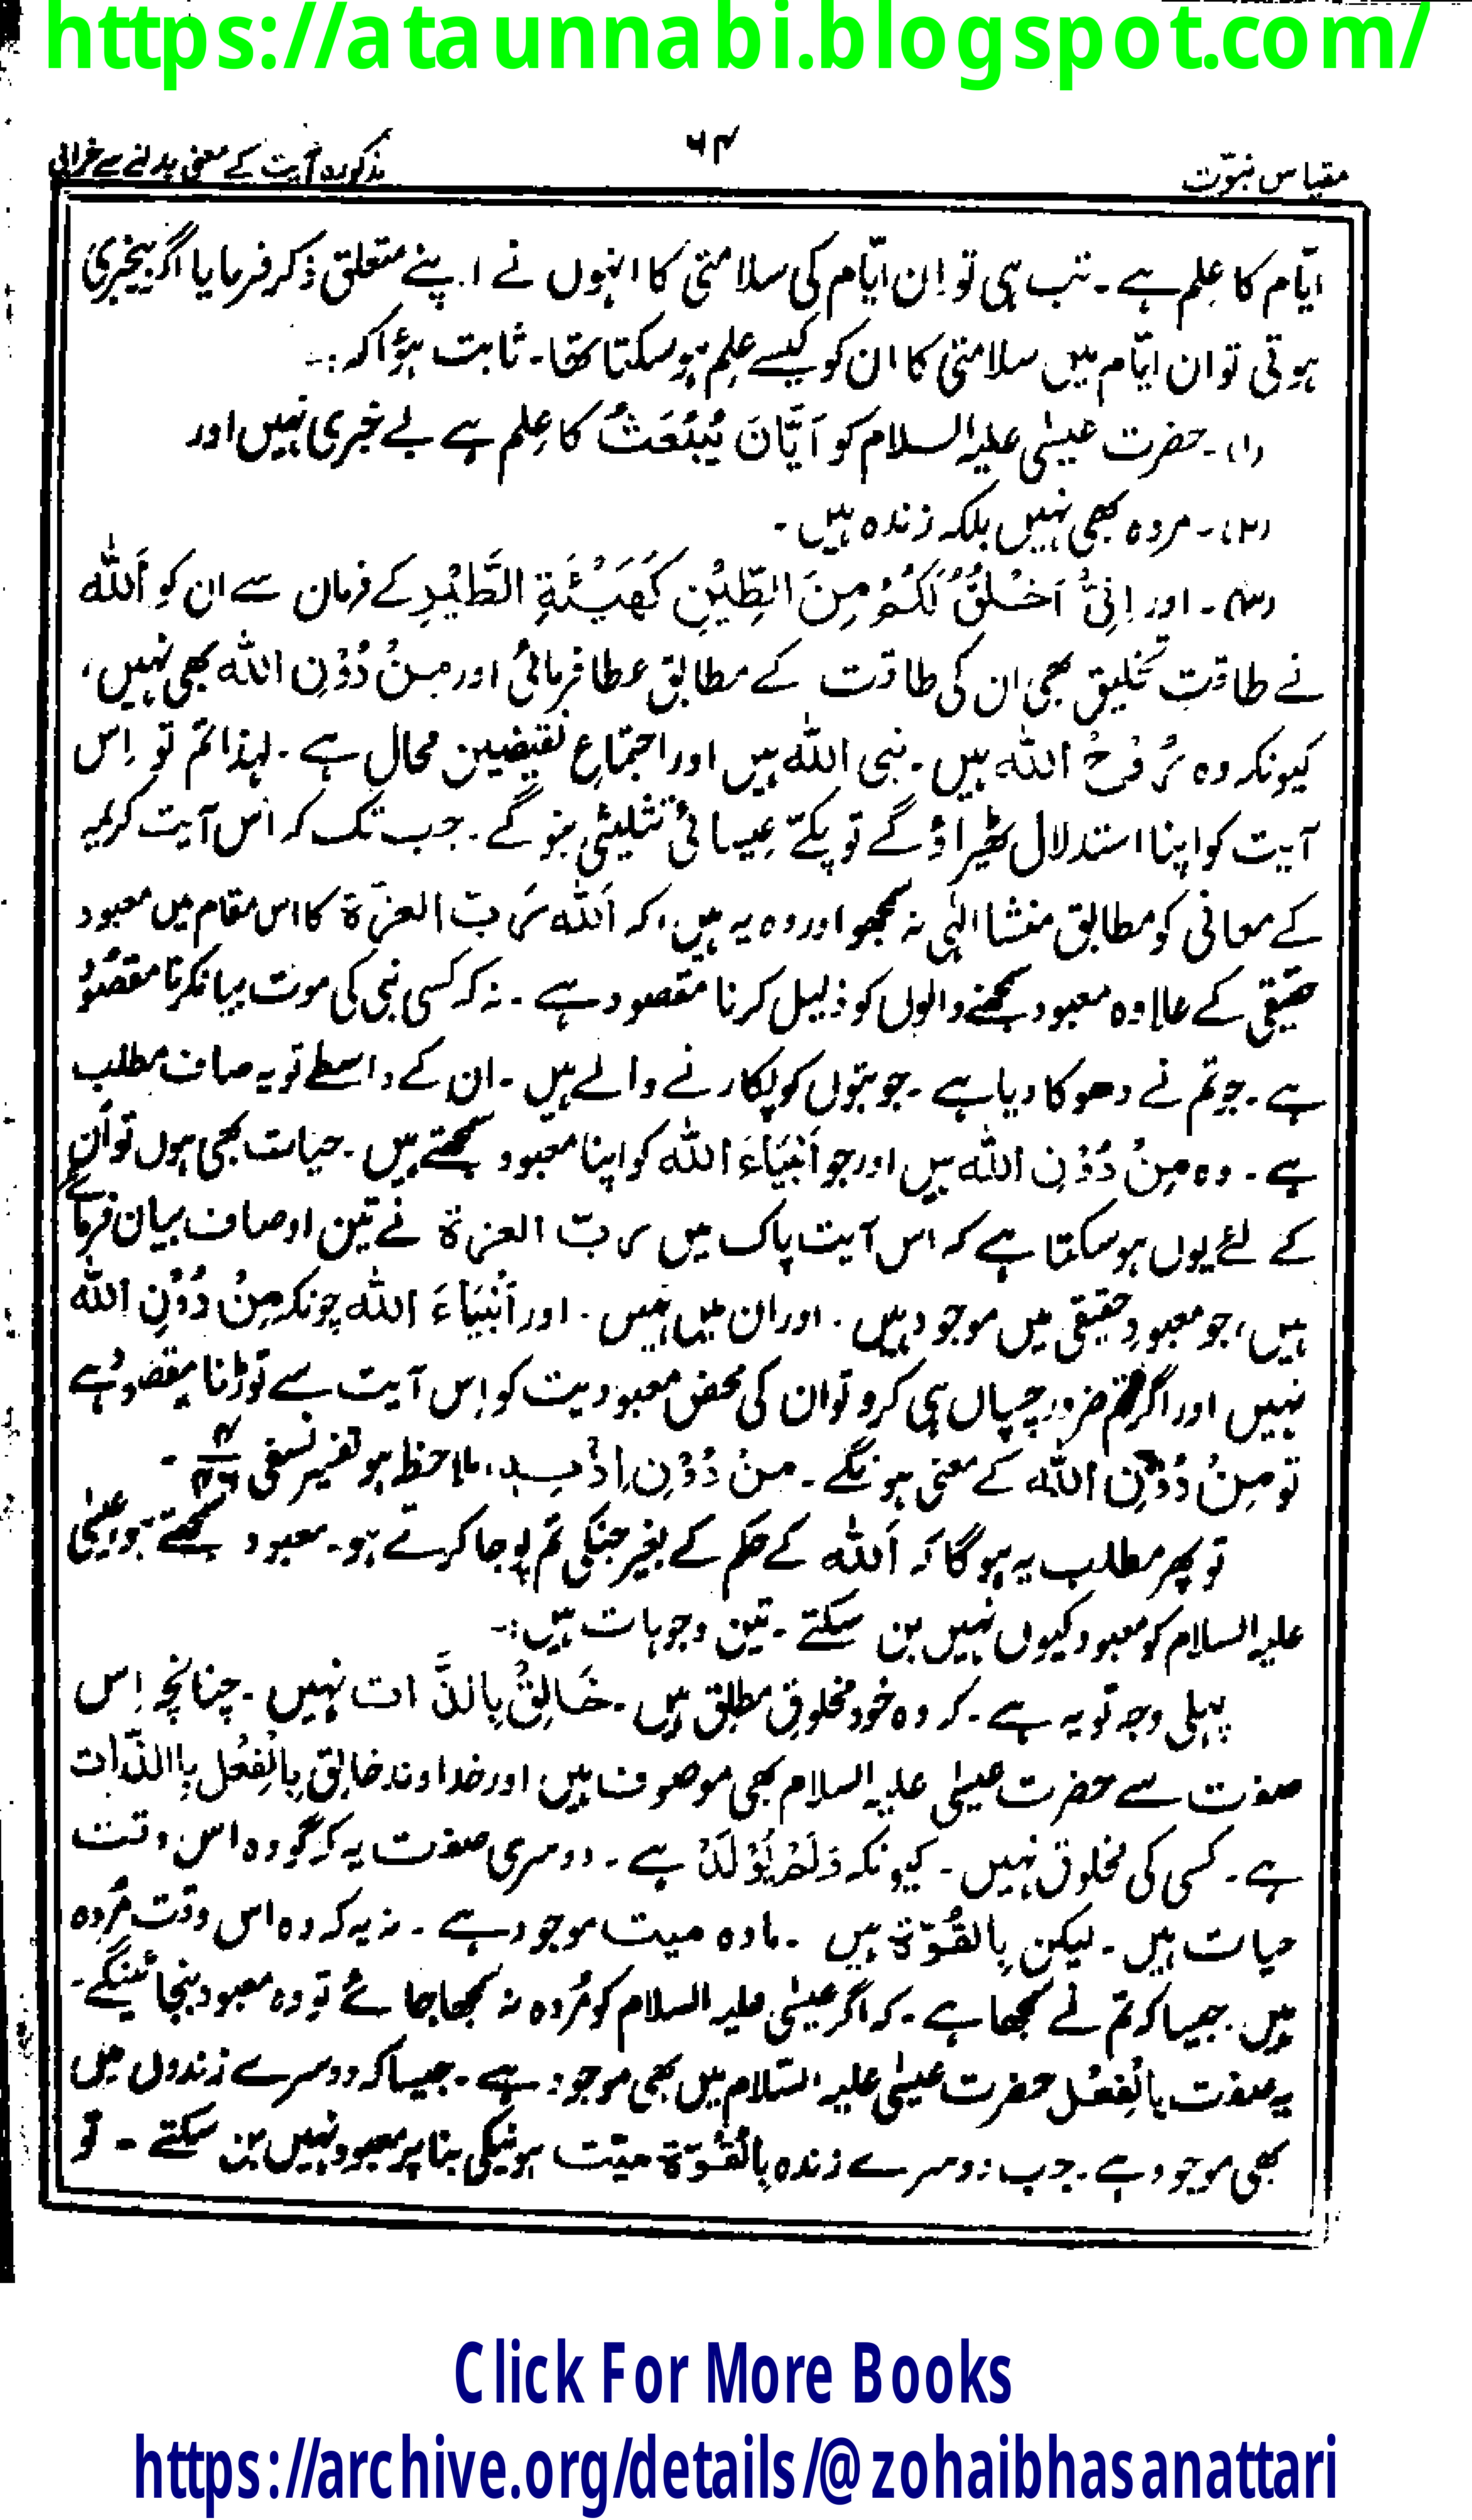 https://ataunnabi.blogspot.com/
مقیاس نبوّت
۶۴
مذکورہ آیت کے معنی بدلنے سے خرابی
ایّام کا عِلم ہے۔ تب ہی تو اِن ایّام کی سلامتی کا انہوں نے اپنے متعلق ذکر فرمایا اگر بیخبری
ہوتی تو ان ایّام میں سلامتی کا ان کو کیسے عِلم ہو سکتا تھا۔ ثابت ہؤا کہ:۔
(۱)۔ حضرت عیسٰی علیہ السلام کو اَیَّانَ یُبْعَثُ کا عِلم ہے بے خبری نہیں اور
(۲)۔ مردہ بھی نہیں بلکہ زندہ ہیں۔
(۳)۔ اور اِنِّیْ اَخْلُقُ لَکُمْ مِنَ الطِّیْنِ کَھَیْئَةِ الطَّیْرِ کے فرمان سے ان کو اَللہ
نے طاقتِ تخلیق بھی ان کی طاقت کے مطابق عطا فرمائی اور مِنْ دُوْنِ اللہ بھی نہیں،
کیونکہ وہ رُوْحُ اللہ ہیں۔ نبی اللہ ہیں اور اجتماعِ نقیضین محال ہے۔ لہذا تم تو اِس
آیت کو اپنا استدلال ٹھیراؤ گے تو پکّے عِیسائی تثلیثی بنو گے۔ جب تک کہ اس آیت کریمہ
کے معانی کو مطابق منشا الہٰی نہ سمجھو اور وہ یہ ہیں، کہ اَللہ رَبّ العزّة کا اس مقام میں معبود
حقیقی کے علاوہ معبود سمجھنے والوں کو ذلیل کرنا مقصود ہے۔ نہ کہ کسی نبی کی موت بیانکرنا مقصُود
ہے۔ جو تم نے دھوکا دیا ہے۔ جو بتوں کو پکارنے والے ہیں۔ ان کے واسطے تو یہ صاف مطلب
ہے۔ وہ مِنْ دُوْنِ اللہ ہیں اور جو اَنْبِیَاءَ اللہ کو اپنا معبود سمجھتے ہیں۔ حیات بھی ہوں تو اُن
کے لئے یوں ہو سکتا ہے کہ اس آیت پاک میں رب العزة نے تین اوصاف بیان فرمائے
ہیں، جو معبودِ حقیقی میں موجود ہیں۔ اور ان میں نہیں۔ اور اَنْبِیَاءَ اللہ چونکہ مِنْ دُوْنِ اللہ
نہیں اور اگر تم ضرور چسپاں ہی کرو تو ان کی محض معبودیت کو اِس آیت سے توڑنا مقصُود ہے
تو مِنْ دُوْنِ اللہ کے معنی ہونگے۔ مِنْ دُوْنِ اِذْنِہٖ، ملاحظہ ہو تفسیر نسفی
تو پھر مطلب یہ ہو گا کہ اَللہ کے حکم کے بغیر جنکی تم پوجا کرتے ہو۔ معبود سمجھتے ہو، عیسٰی
علیہ السلام کو معبود کیوں نہیں بن سکتے۔ تین وجوہات ہیں:۔
پہلی وجہ تو یہ ہے۔ کہ وہ خود مخلوقِ مطلق ہیں۔ خَالِقُ بِالذَّات نہیں۔ چنانچہ اِس
صفت سے حضرت عیسٰی علیہ السلام بھی موصوف ہیں اور خداوند خالِق بِالْفِعْل بِاالذّات
ہے۔ کسی کی مخلوق نہیں۔ کیونکہ وَلَمْ یُوْلَدْ ہے۔ دوسری صفت یہ کہ گو وہ اس وقت
حیات ہیں۔ لیکن بِالقُوّة ہیں۔ مادہ میت موجود ہے۔ نہ یہ کہ وہ اس وقت مُردہ
ہیں۔ جیسا کہ تم نے سمجھا ہے۔ کہ اگر عیسٰی علیہ السلام کو مُردہ نہ سمجھا جائے تو وہ معبود بنجائینگے۔
یہ صفت بالْفِعْل حضرت عیسٰی علیہ السّلام میں بھی موجود ہے۔ جیسا کہ دوسرے زندوں میں
بھی موجود ہے۔ جب دوسرے زندہ بِالْقُوّة میّت ہونیکی بنا پر معبود نہیں بن سکتے۔ تو
Click For More Books
https://archive.org/details/@zohaibhasanattari